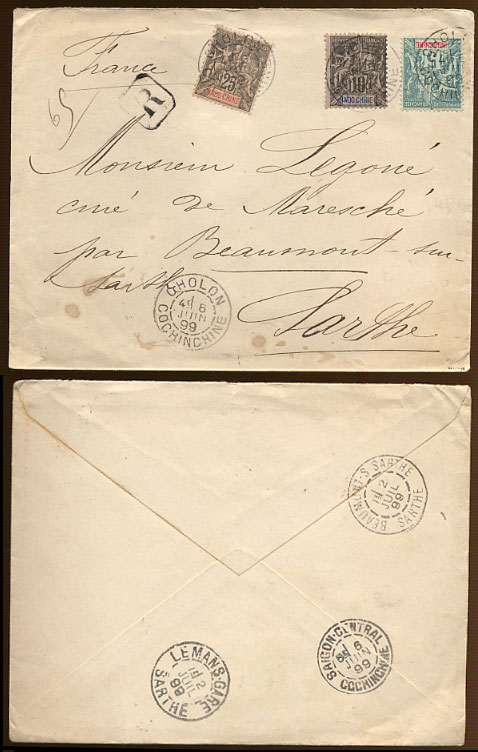 France
R
25
INDO-CHINE
10
INDO-CHINE
INDO-CHINE
65
Monsieur Legoué
curé de Maresché
par Beaumont-sur-
Sarthe
Sarthe
CHOLON
6
JUIN
99
COCHINCHINE
BEAUMONT-S-SARTHE
2
JUIL
99
SARTHE
LE MANS-GARE
2
JUIL
99
SARTHE
SAIGON-CENTRAL
6
JUIN
99
COCHINCHINE